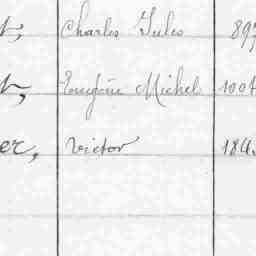 t, Charles Jules 897
t, Eugène Michel 1004
er, Victor 184